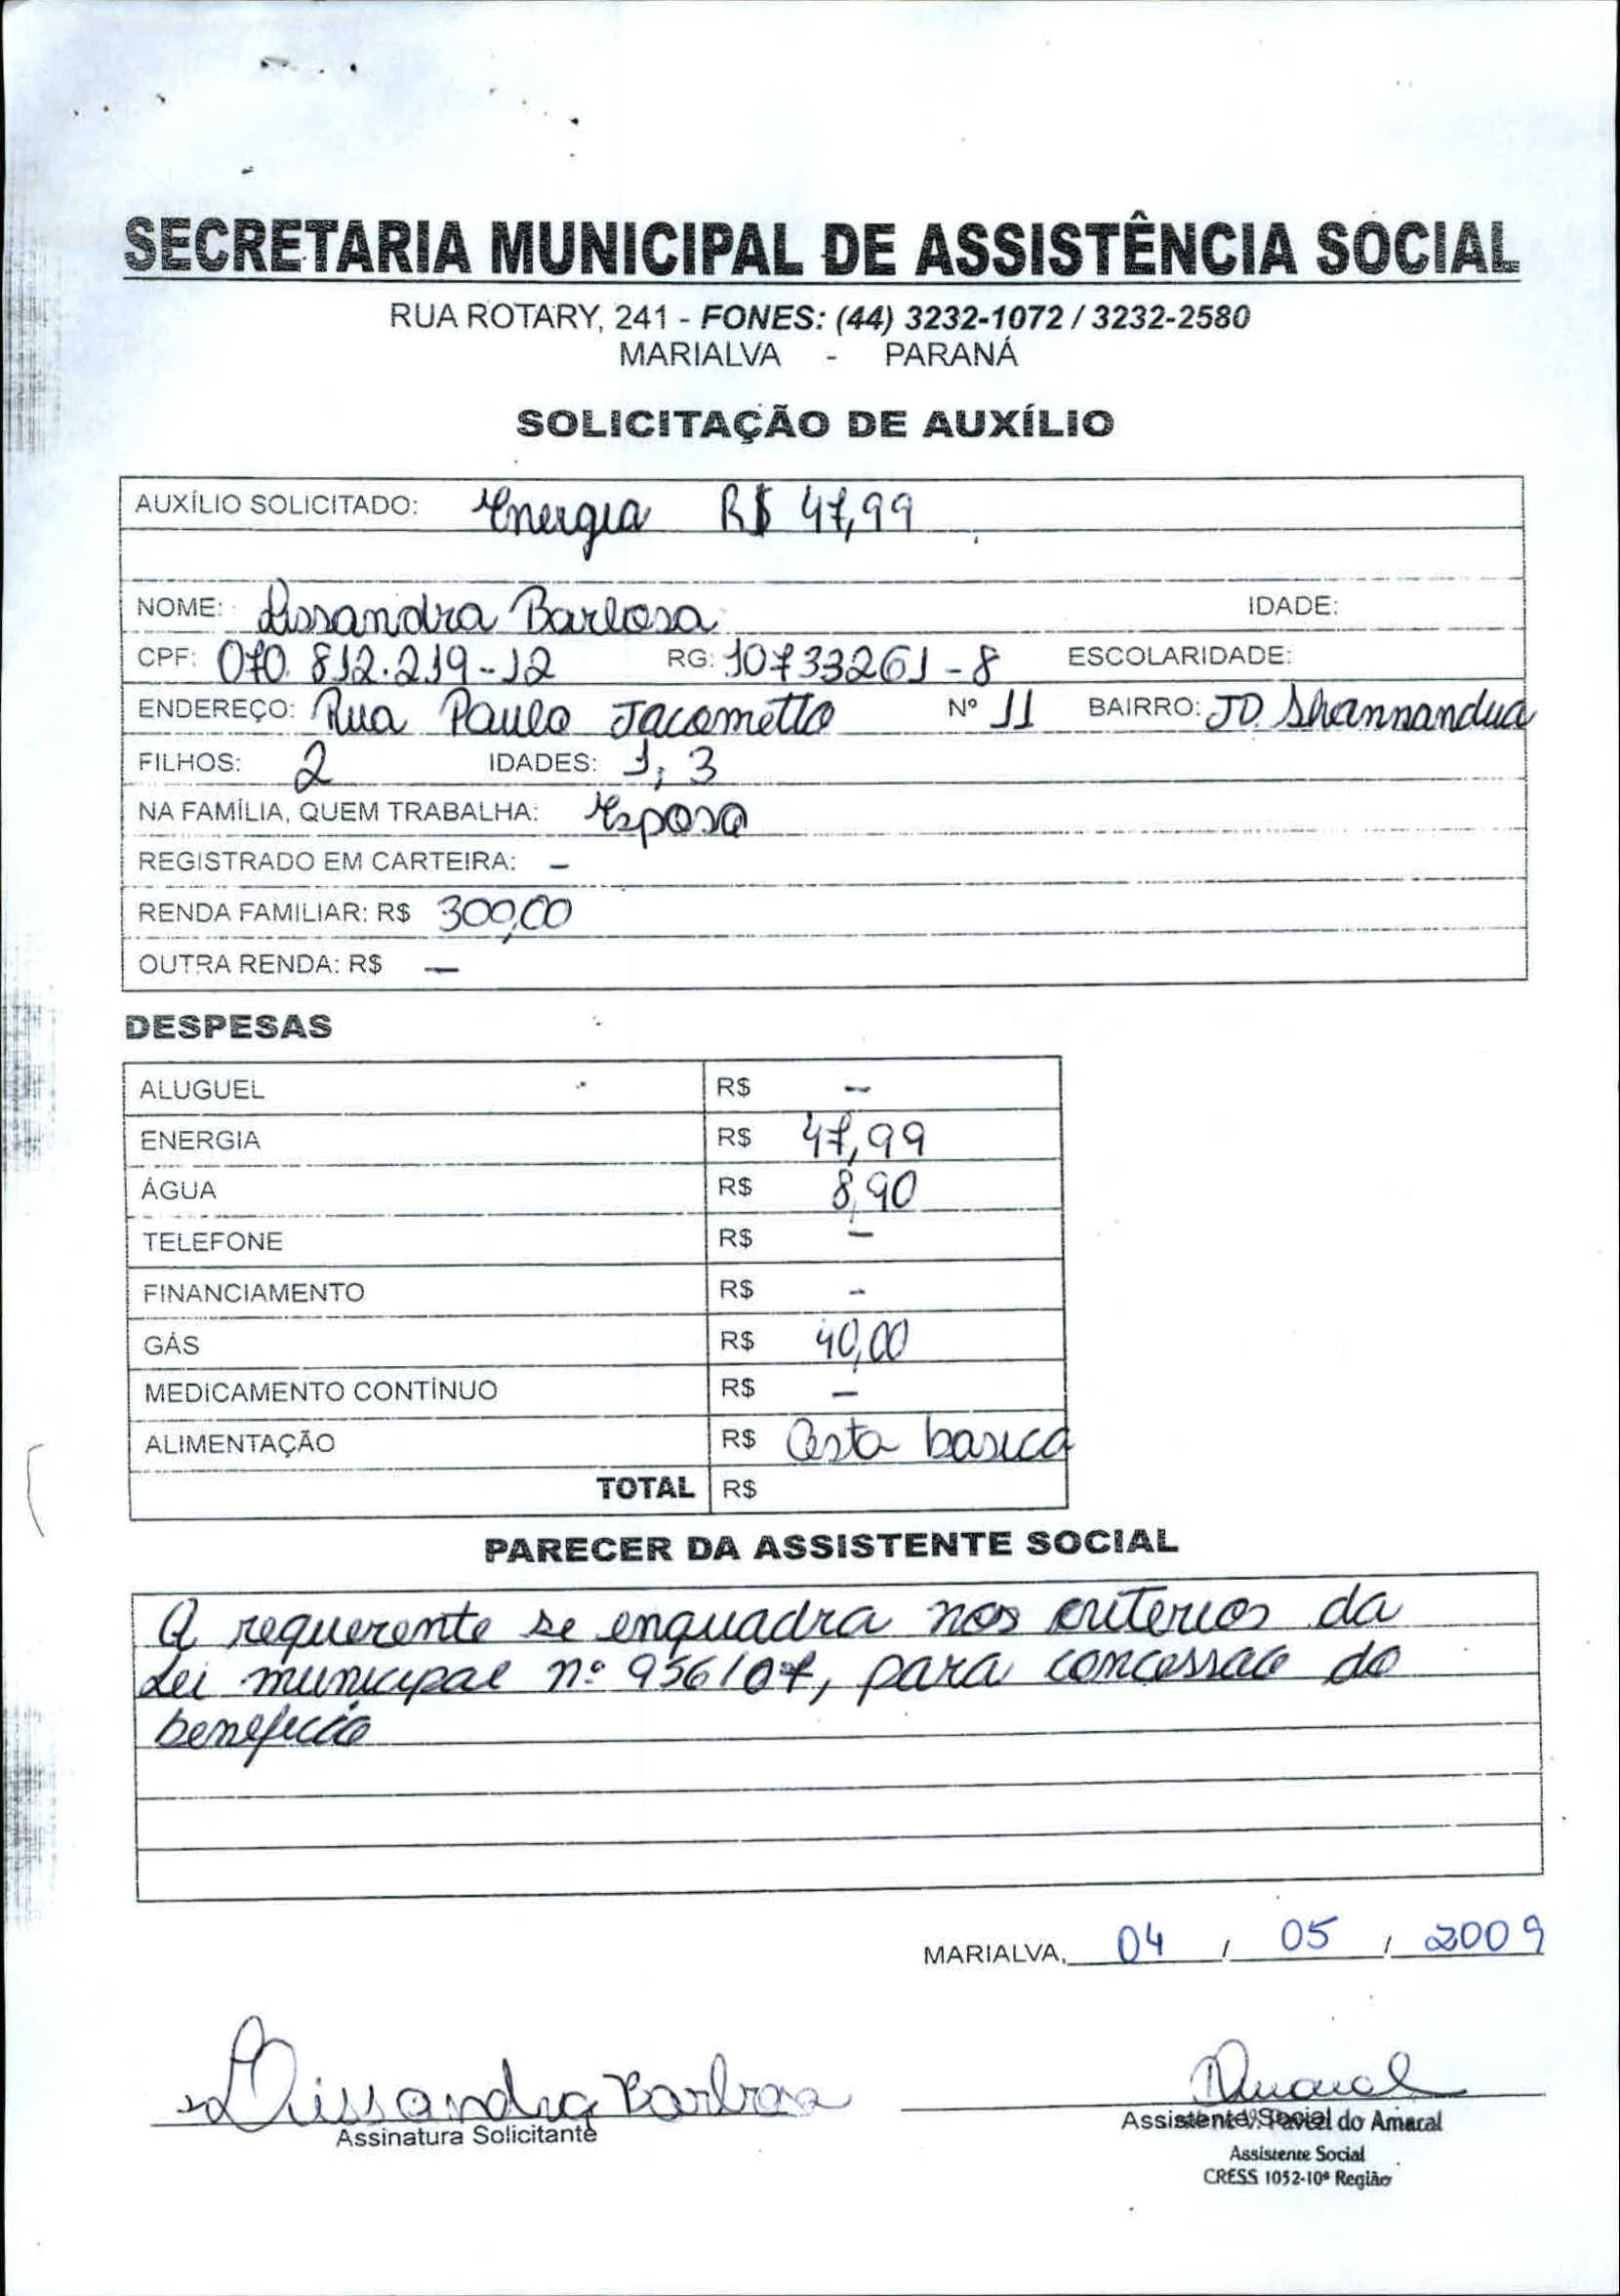 SECRETARIA MUNICIPAL DE ASSISTÊNCIA SOCIAL
RUA ROTARY, 241 - FONES: (44) 3232-1072 / 3232-2580
MARIALVA - PARANÁ
SOLICITAÇÃO DE AUXÍLIO
AUXÍLIO SOLICITADO: Energia R$ 47,99
NOME: Lissandra Barbosa IDADE:
CPF: 070.812.219-12 RG: 10733261-8 ESCOLARIDADE:
ENDEREÇO: Rua Paulo Jacometto Nº 11 BAIRRO: JD
FILHOS: 2 IDADES: 1, 3
NA FAMÍLIA, QUEM TRABALHA: Esposo
REGISTRADO EM CARTEIRA: -
RENDA FAMILIAR: R$ 300,00
OUTRA RENDA: R$ —
DESPESAS
ALUGUEL R$ -
ENERGIA R$ 47,99
ÁGUA R$ 8,90
TELEFONE R$ -
FINANCIAMENTO R$ -
GÁS R$ 40,00
MEDICAMENTO CONTÍNUO R$ -
ALIMENTAÇÃO R$ Cesta basica
TOTAL R$
PARECER DA ASSISTENTE SOCIAL
A requerente se enquadra nos criterios da
Lei municipal nº 956/07, para concessao do
beneficio
MARIALVA, 04 / 05 / 2009
Lissandra Barbosa
Assinatura Solicitante
Assistente Social do Amaral
Assistente Social
CRESS 1052-10ª Região